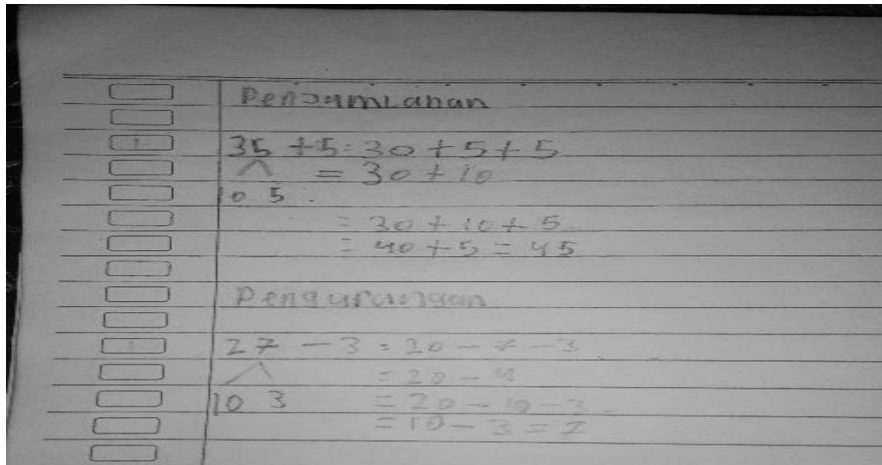 Penjumlahan
35 + 5 = 30 + 5 + 5
= 30 + 10
10 5
= 30 + 10 + 5
= 40 + 5 = 45
Pengurangan
27 - 3 = 20 - 7 - 3
= 20 - 4
10 3
= 20 - 10 - 3
= 10 - 3 = 7